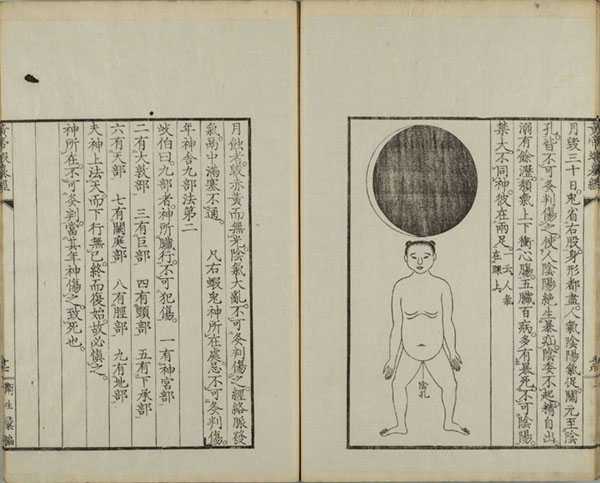 月毀三十日兎省右股身形都盡人氣陰陽氣促關元至陰
孔皆不可灸判傷之使人陰陽絶生暴疝陰委不起精自出
溺有餘瀝㿗氣上下衝心膓五臟百病多有暴死不可陰陽
禁大不同神彼在兩足一云人氣
在踝上
陰孔
月蝕者毀赤黃而無光陰氣大亂不可灸判傷之經絡脈發
氣昜中滿塞不通　凡右蝦兎神所在處忌不可灸判傷
年神舎九部法第二
岐伯曰九部者神所臟行不可犯傷　一有神宮部
二有大敦部　三有巨部　四有頸部　五有下承部
六有天部　七有闕庭部　八有脛部　九有地部
夫神上法天而下行無已終而復始故必慎之
神所在不可灸判當其年神傷之致死也
黃帝蝦蟇經
衛生彙編